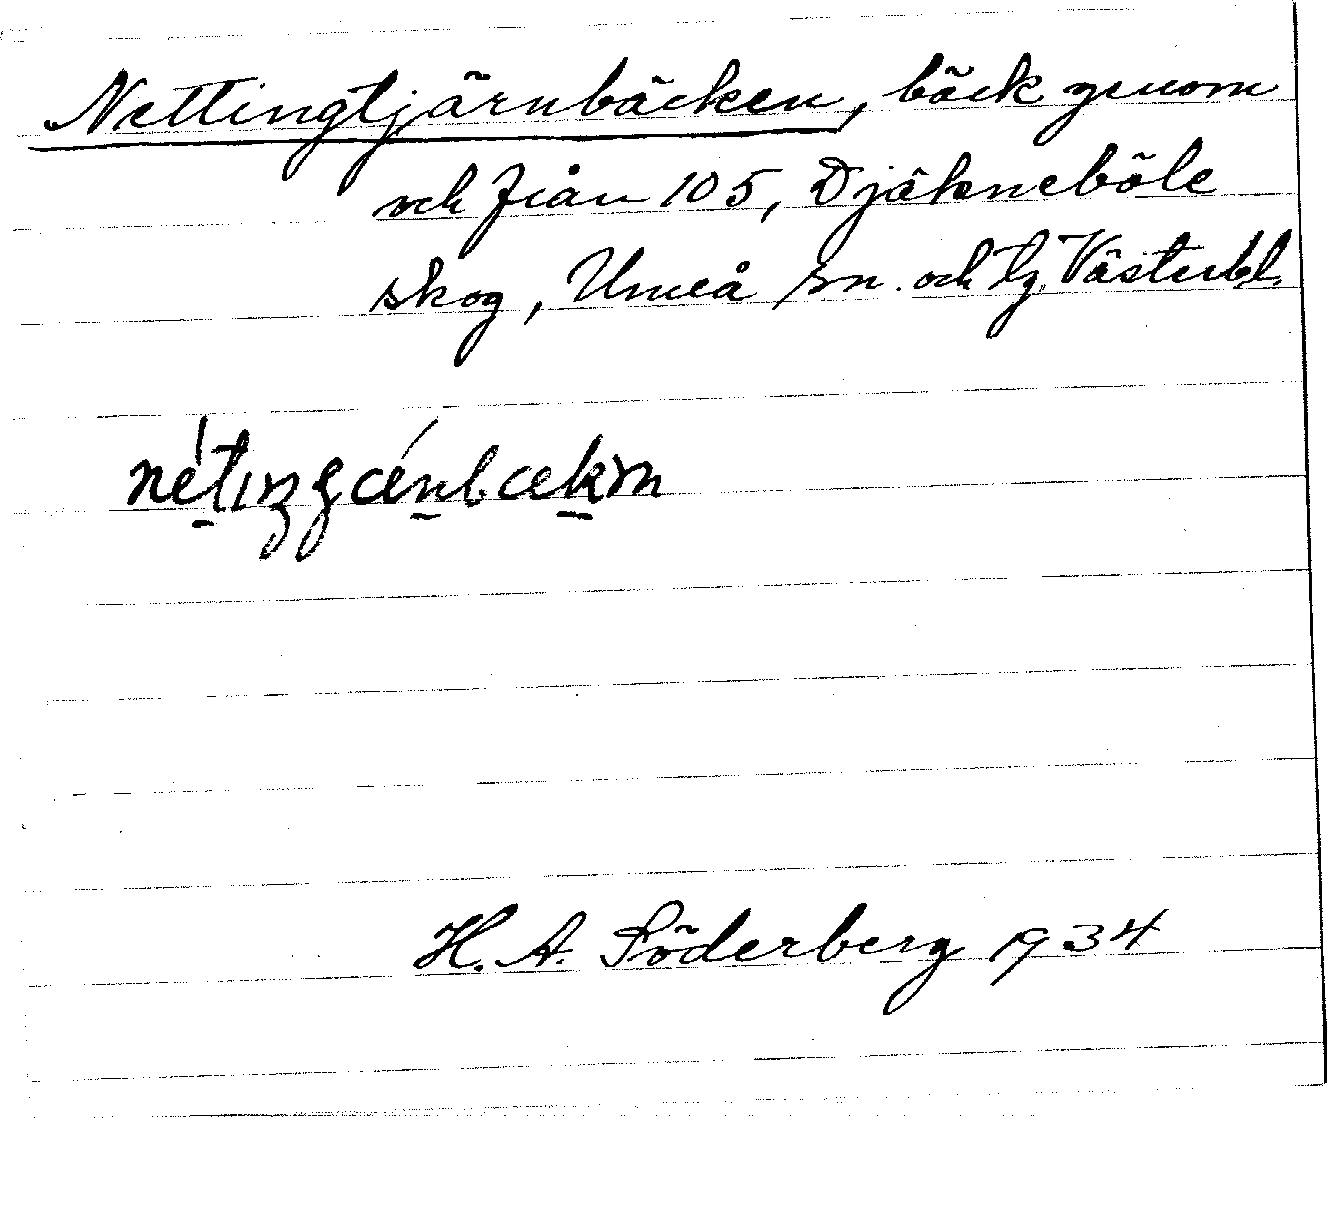 Nettingtjärnbäcken, bäck genom
och från 105, Djäkneböle
skog, Umeå sn. och tg. Västerbl.
H. A. Söderberg 1934